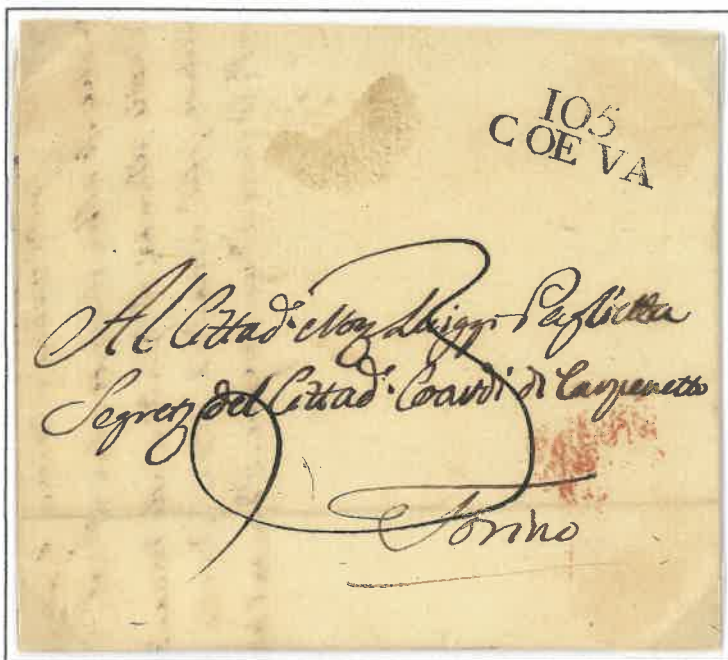 105
COEVA
Al Cittad.e Luiggi Paglietta
Segret del Cittad.e Coardi di Carpenetto
3
Torino